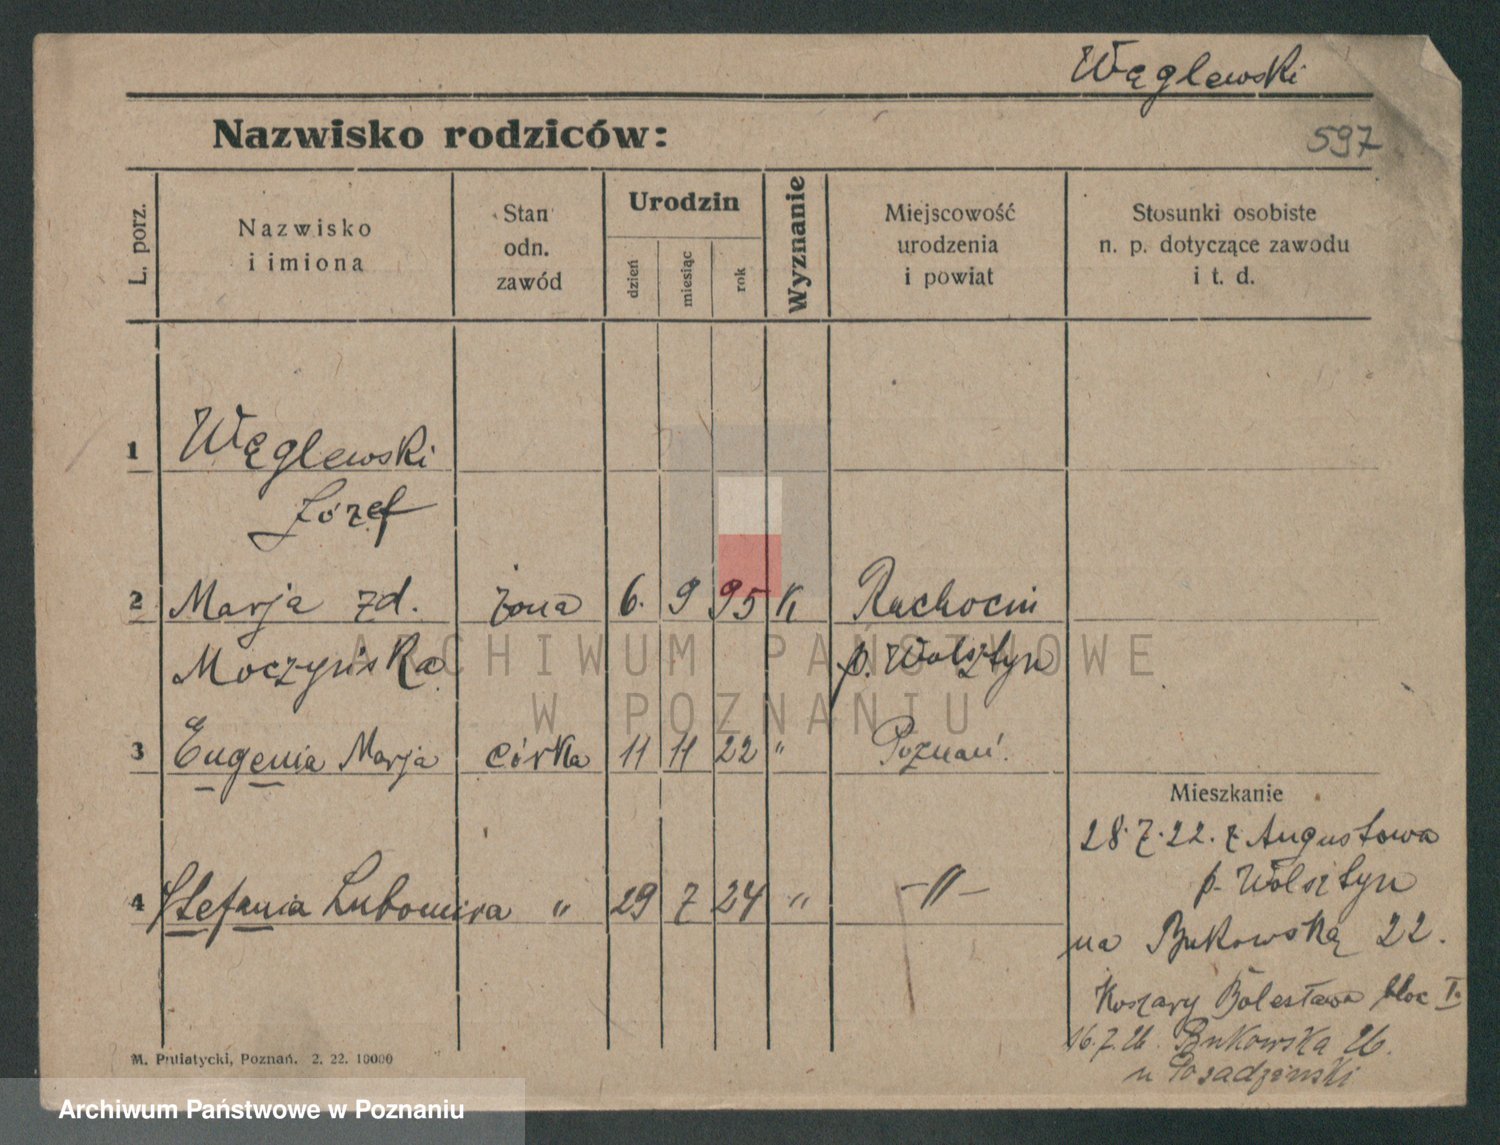 Węglewski
Nazwisko rodziców:
597
L. porz.
Nazwisko
i imiona
Stan
odn.
zawód
Urodzin
dzień
miesiąc
rok
Wyznanie
Miejscowość
urodzenia
i powiat
Stosunki osobiste
n. p. dotyczące zawodu
i t. d.
1 Węglewski
Józef
2 Marja zd. żona 6. 9 95 K Ruchocin
Moczyńska p. Wolsztyn
3 Eugenia Marja córka 11 11 22 " Poznań.
Mieszkanie
28.7.22. z Augustowa
p. Wolsztyn
4 Stefania Lubomira " 29 7 24 " -"-
na Bukowską 22.
Koszary Bolesława bloc I.
16.7.26. Bukowska 26.
u Posadzinski
M. Putiatycki, Poznań. 2. 22. 10000
ARCHIWUM PAŃSTWOWE
W POZNANIU
Archiwum Państwowe w Poznaniu